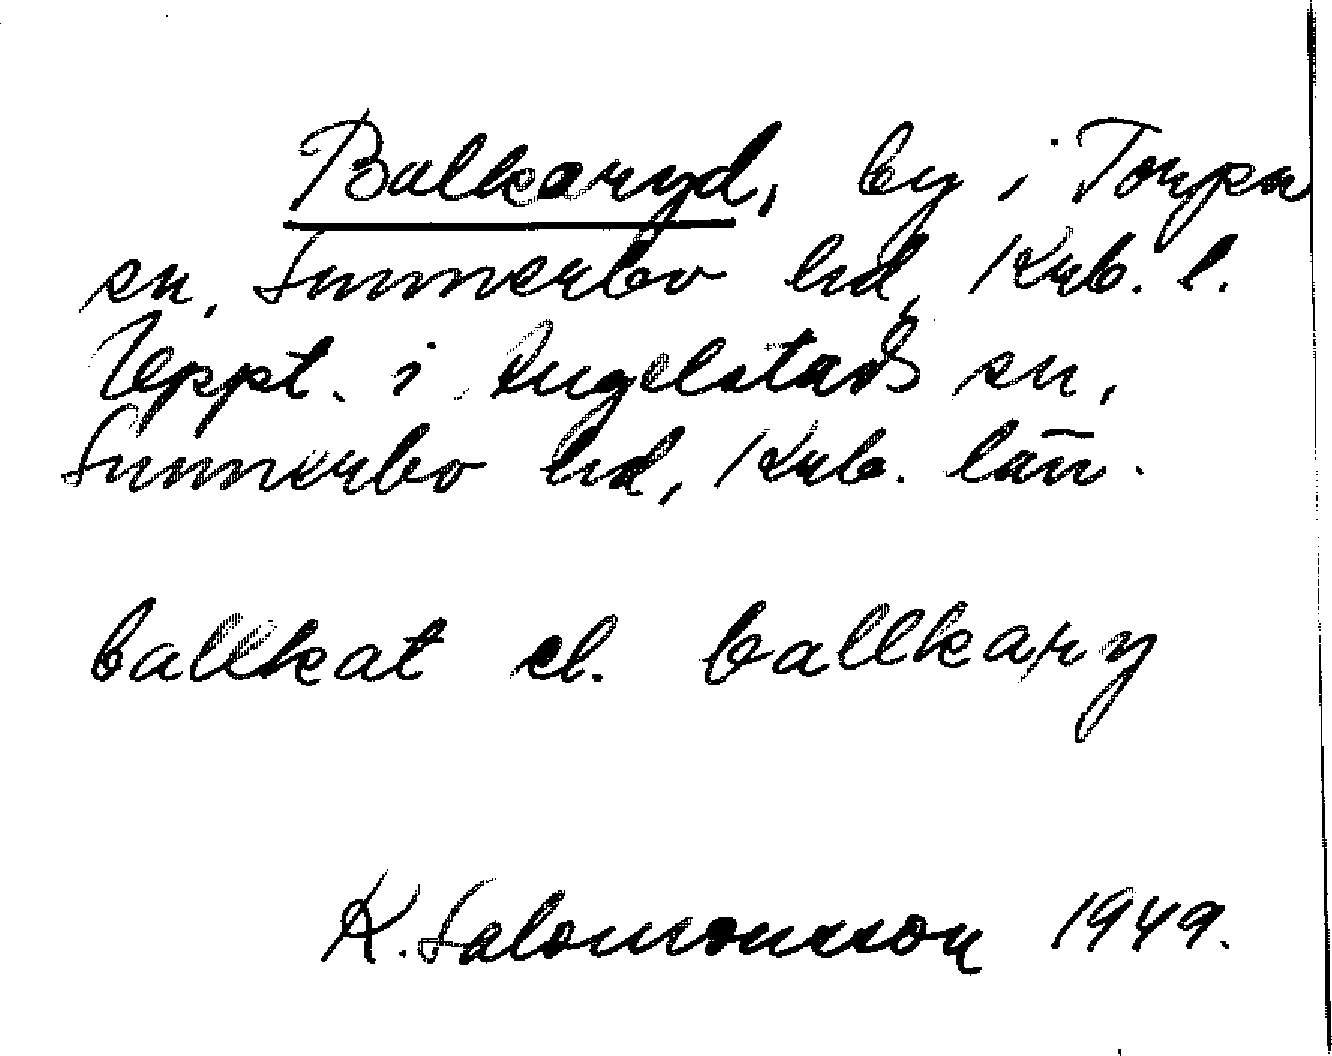 Balkaryd, by i Torpa
sn, Sunnerbo hd, Krb. l.
Uppt. i Angelstads sn,
Sunnerbo hd, Krb. län.
ballkat el. ballkary
K. Salomonsson 1949.